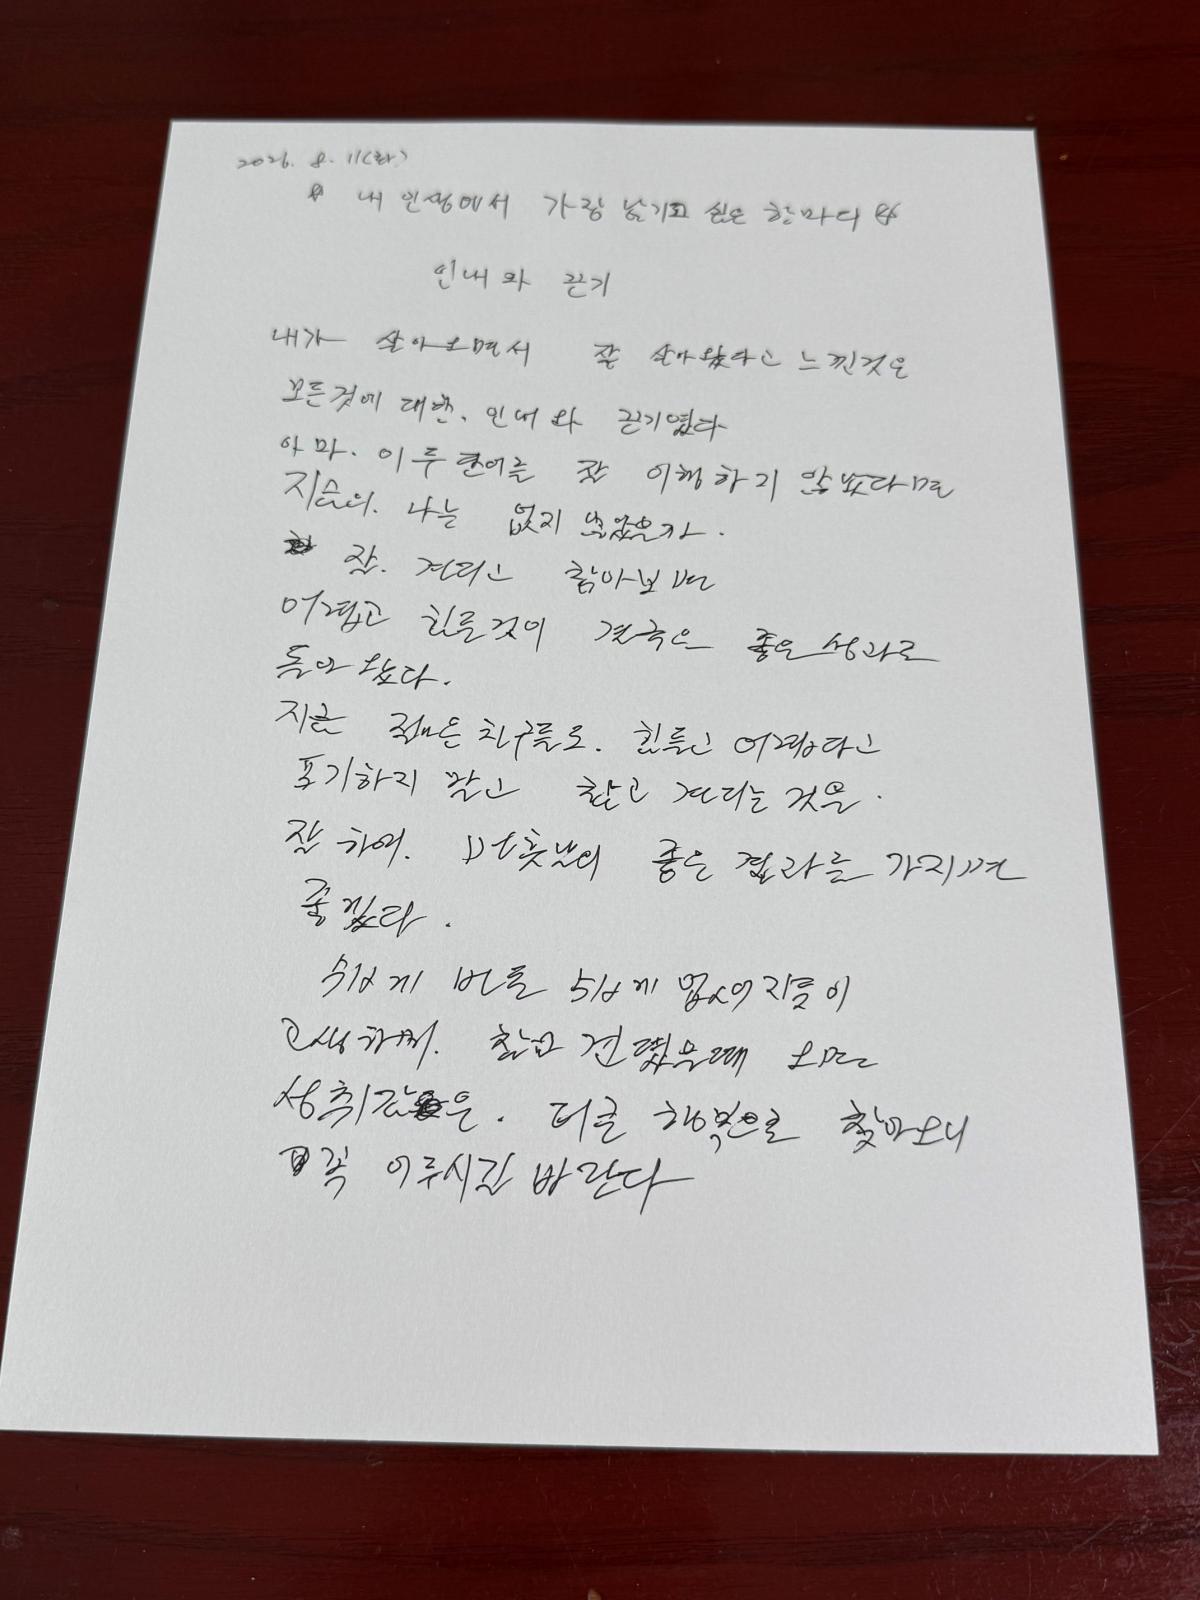 2026. 8. 11(화)
☆ 내 인생에서 가장 남기고 싶은 한마디 ☆
인내와 끈기
내가 살아오면서 잘 살아왔다고 느낀것은
모든것에 대한. 인내와 끈기였다
아마. 이 두 단어를 잘 이행하지 않았다면
지금의. 나는 없지 않았을까.
잘. 견디고 참아보면
어렵고 힘든것이 결국은 좋은 성과로
돌아왔다.
지금 젊은 친구들도. 힘들고 어렵다고
포기하지 말고 참고 견디는 것을.
잘 하여. 먼훗날의 좋은 결과를 가지면
좋겠다.
쉽게 번돈 쉽게 없어지듯이
고생하며. 참고 견뎠을때 오는
성취감은. 더큰 행복으로 찾아오니
꼭 이루시길 바란다